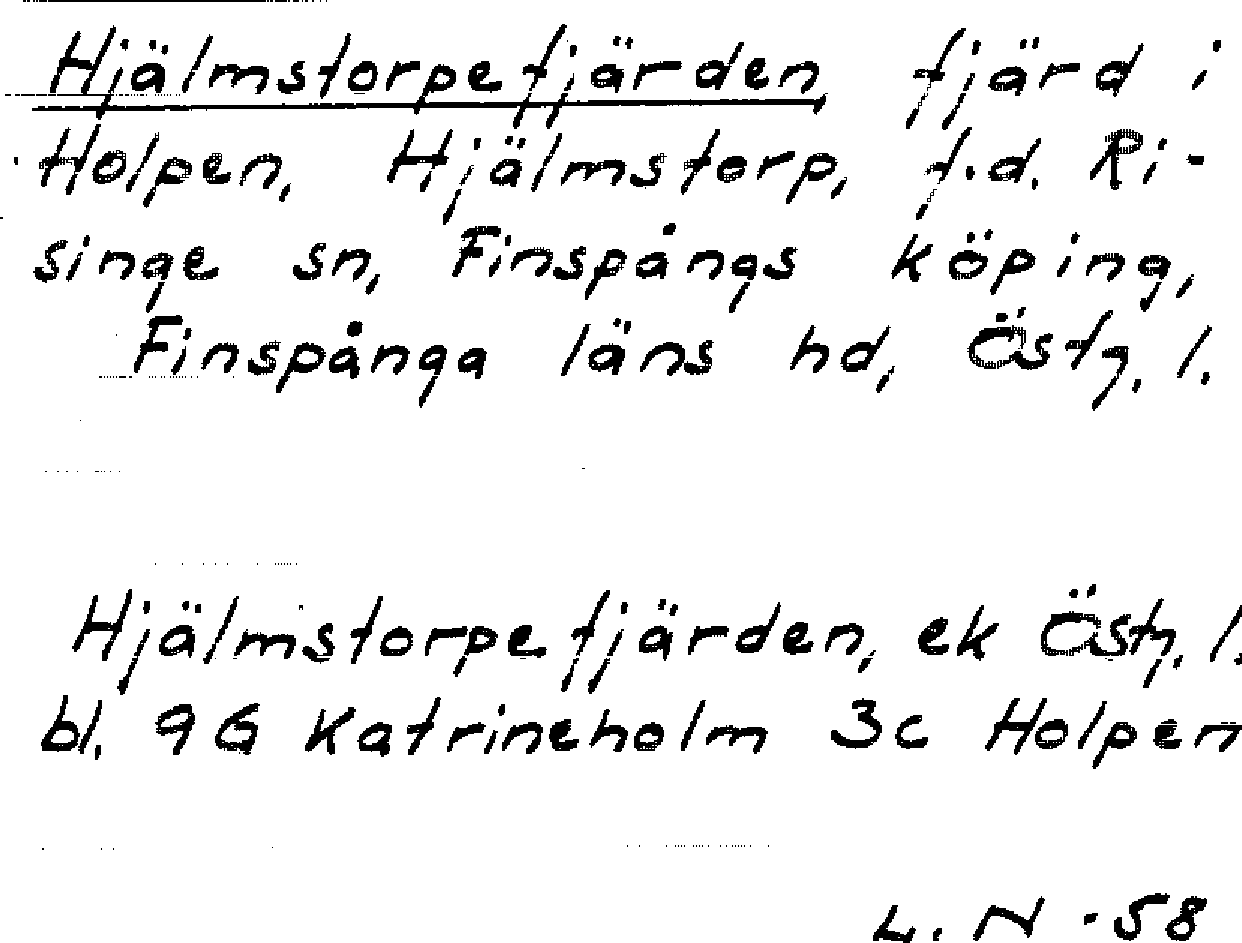 Hjälmstorpefjärden, fjärd i
Holpen, Hjälmstorp, f.d. Ri-
singe sn, Finspångs köping,
Finspånga läns hd, Östg. l.
Hjälmstorpefjärden, ek Östg. l.
bl. 9G Katrineholm 3c Holpen
L. N -58